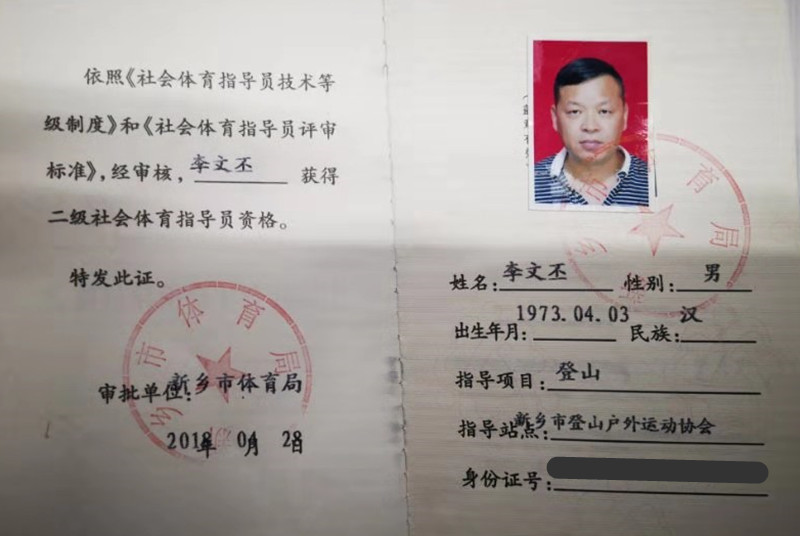 依照《社会体育指导员技术等
级制度》和《社会体育指导员评审
标准》，经审核，李文丕 获得
二级社会体育指导员资格。
特发此证。
审批单位：新乡市体育局
2018年 04月 28日
新乡市体育局
姓名：李文丕 性别：男
出生年月：1973.04.03 民族：汉
指导项目：登山
指导站点：新乡市登山户外运动协会
身份证号：
乡市体育局